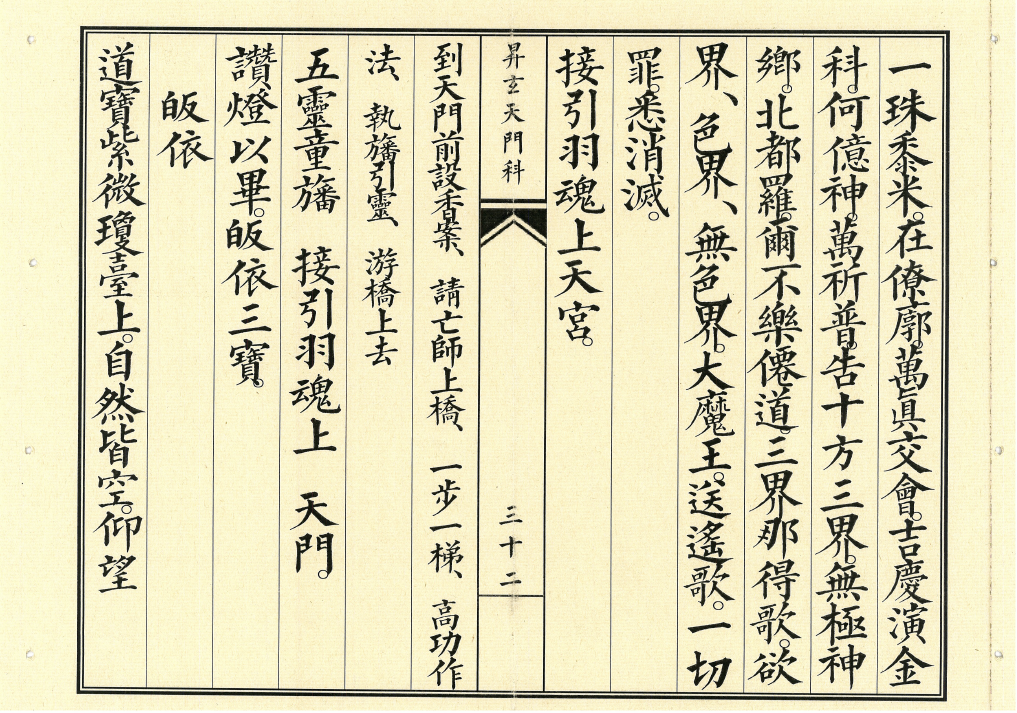 一珠黍米。在僚廓。萬眞交會。吉慶演金
科。何億神。萬祈普。告十方三界。無極神
鄉。北都羅。爾不樂僊道。三界那得歌。欲
界、色界、無色界。大魔王。送遙歌。一切
罪。悉消滅。
接引羽魂上天宮。
昇玄天門科
三十二
到天門前設香案、請亡師上橋、一步一梯、高功作
法、執旛引靈、游橋上去
五靈童旛 接引羽魂上 天門。
讚燈以畢。皈依三寶。
皈依
道寶紫微瓊臺上。自然皆空。仰望